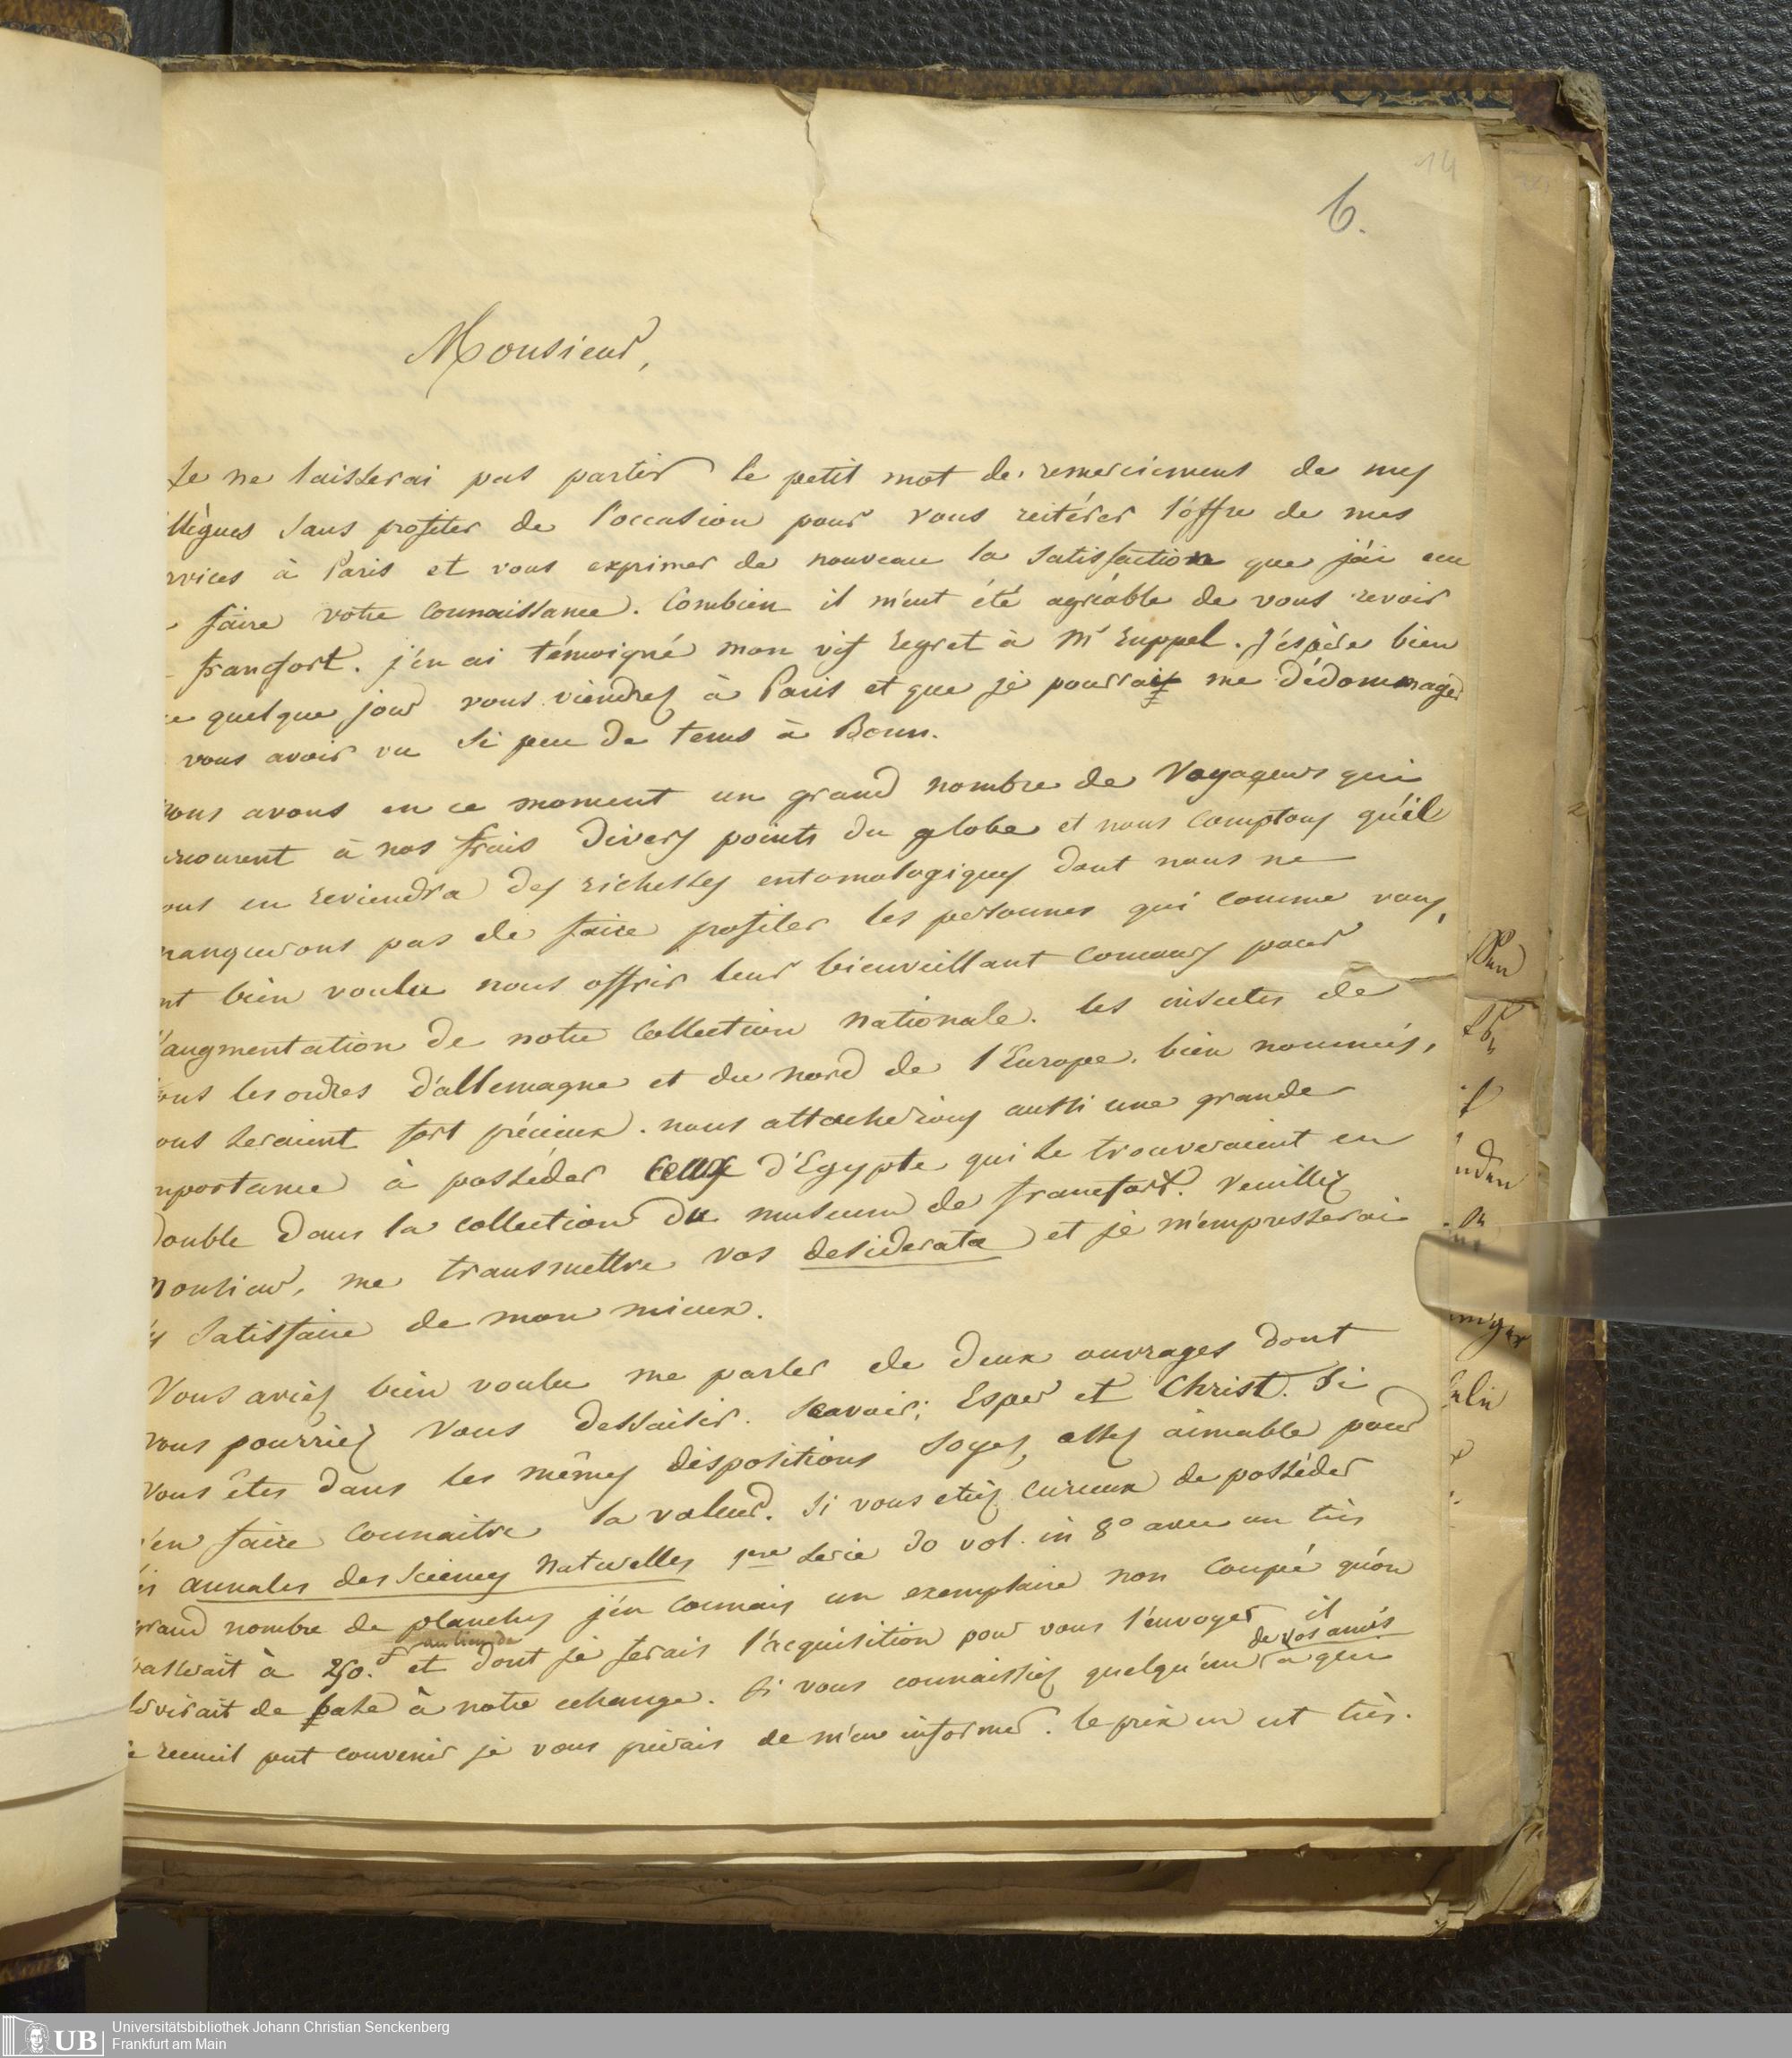 14
6.
Monsieur,
Je ne laisserai pas partir le petit mot de remerciement de mes
llègues sans profiter de l'occasion pour vous réitérer l'offre de mes
rvices à Paris et vous exprimer de nouveau la satisfaction que j'ai eu
faire votre connaissance. Combien il m'eut été agréable de vous revoir
francfort. j'en ai témoigné mon vif regret à Mr Ruppel. J'éspère bien
e quelque jour vous viendrez à Paris et que je pourrai me dédommager
vous avoir vu si peu de tems à Bonn.
ous avons en ce moment un grand nombre de Voyageurs qui
rcourent à nos frais divers points du globe et nous comptons qu'il
ous en reviendra des richesses entomologiques dont nous ne
manquerons pas de faire profiter les personnes qui comme vous,
nt bien voulu nous offrir leur bienveillant concours pour
l'augmentation de notre Collection Nationale. les insectes de
ous les ordres d'allemagne et du nord de l'Europe, bien nommés,
ous seraient fort précieux. nous attacherions aussi une grande
mportance à posséder ceux d'Egypte qui se trouveraient en
double dans la collection du museum de francfort. Veuillez
Monsieur, me transmettre vos desiderata et je m'empresserai
y satisfaire de mon mieux.
Vous aviez bien voulu me parler de deux ouvrages dont
vous pourriez vous dessaisir. Scavoir; Esper et Christ. Si
vous êtes dans les mêmes dispositions soyez, assez aimable pour
'en faire connaitre la valeur. Si vous etiez curieux de posséder
es annales des Sciences Naturelles 1ere Serie 30 vol. in 8° avec un très
grand nombre de planches j'en connais un exemplaire non coupé qu'on
au lieu de
passerait à 250.f et dont je ferais l'acquisition pour vous l'envoyer il
de vos amis
servirait de base à notre echange. Si vous connaissiez quelqu'un à qui
e recueil put convenir je vous prierais de m'en informer. le prix en est très.